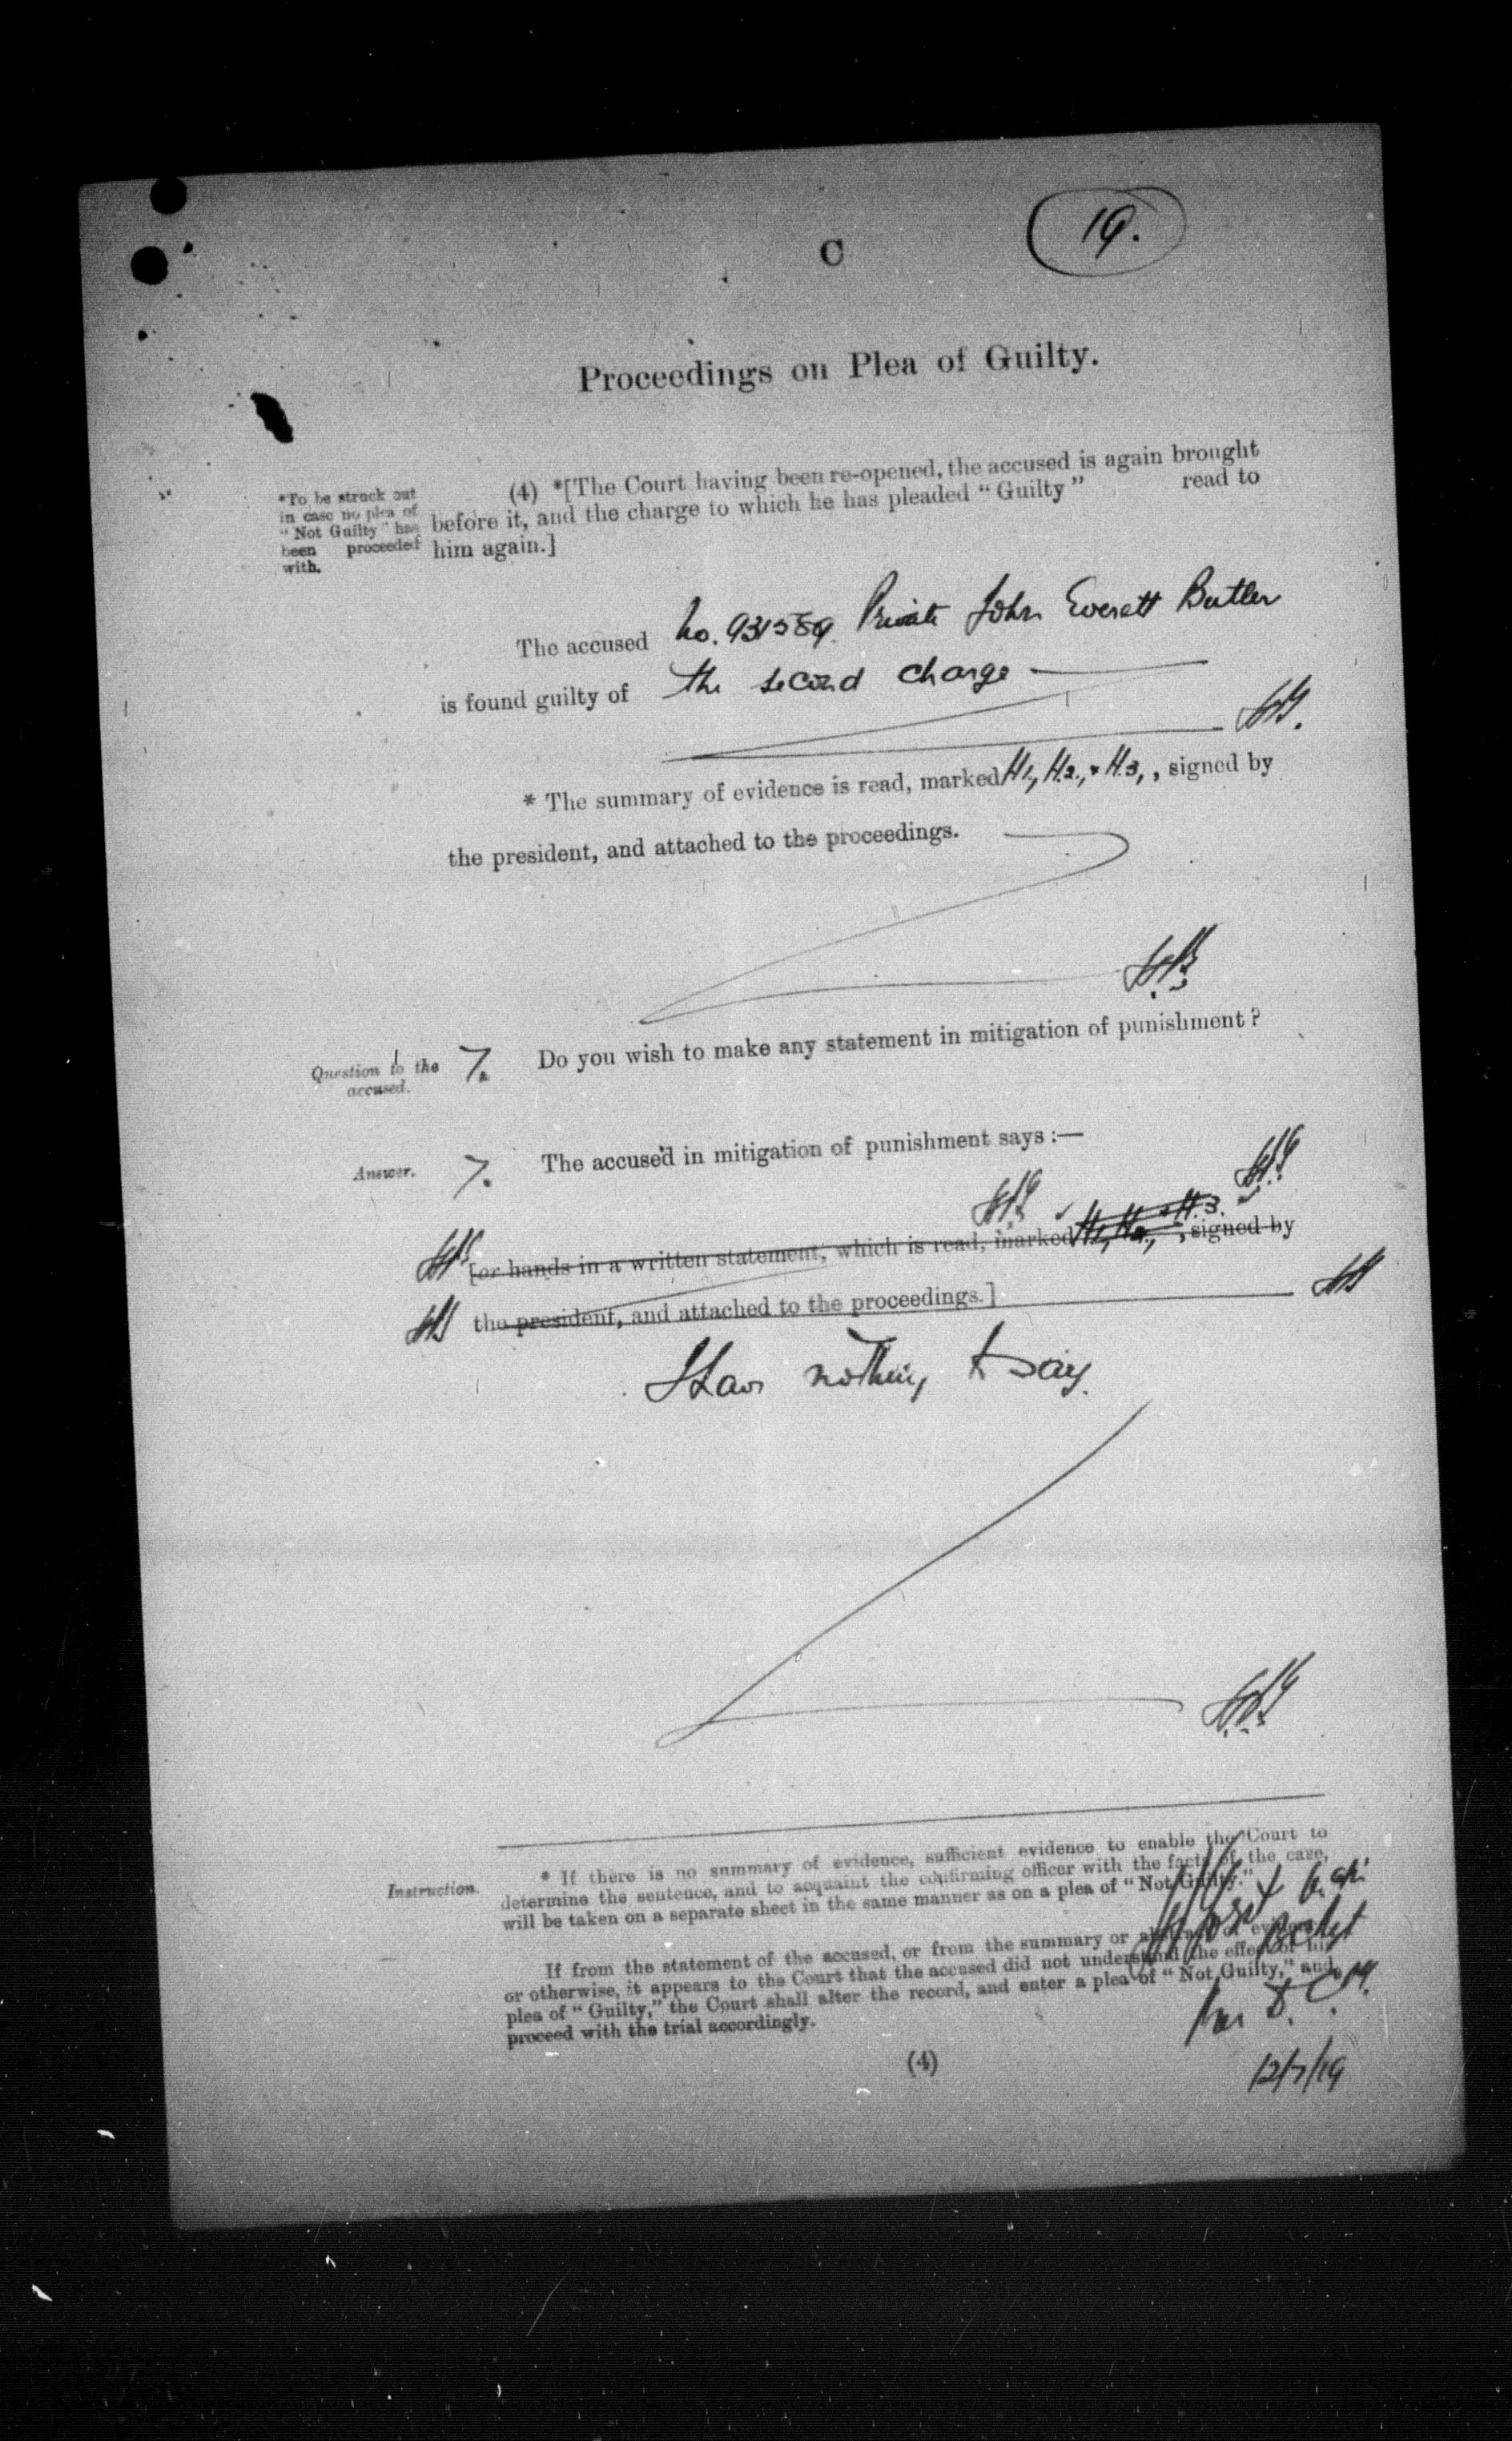 19.
C
Proceedings on Plea of Guilty.
*To be struck out
in case no plea of
"Not Guilty" has
been proceeded
with.
(4) *[The Court having been re-opened, the accused is again brought
before it, and the charge to which he has pleaded "Guilty" read to
him again.]
The accused No. 931589 Private John Everett Butler
is found guilty of the second charge
* The summary of evidence is read, marked H1, H.2., & H.3, , signed by
the president, and attached to the proceedings.
Question to the
accused.
7. Do you wish to make any statement in mitigation of punishment?
Answer.
7. The accused in mitigation of punishment says :—
[or hands in a written statement, which is read, marked H1, H2, & H.3. , signed by
the president, and attached to the proceedings.]
I Have nothing to say.
Instruction.
* If there is no summary of evidence, sufficient evidence to enable the Court to
determine the sentence, and to acquaint the confirming officer with the facts of the case,
will be taken on a separate sheet in the same manner as on a plea of "Not Guilty."
If from the statement of the accused, or from the summary or abstract of evidence,
or otherwise, it appears to the Court that the accused did not understand the effect of his
plea of "Guilty," the Court shall alter the record, and enter a plea of "Not Guilty," and
proceed with the trial accordingly.
(4)
12/7/19